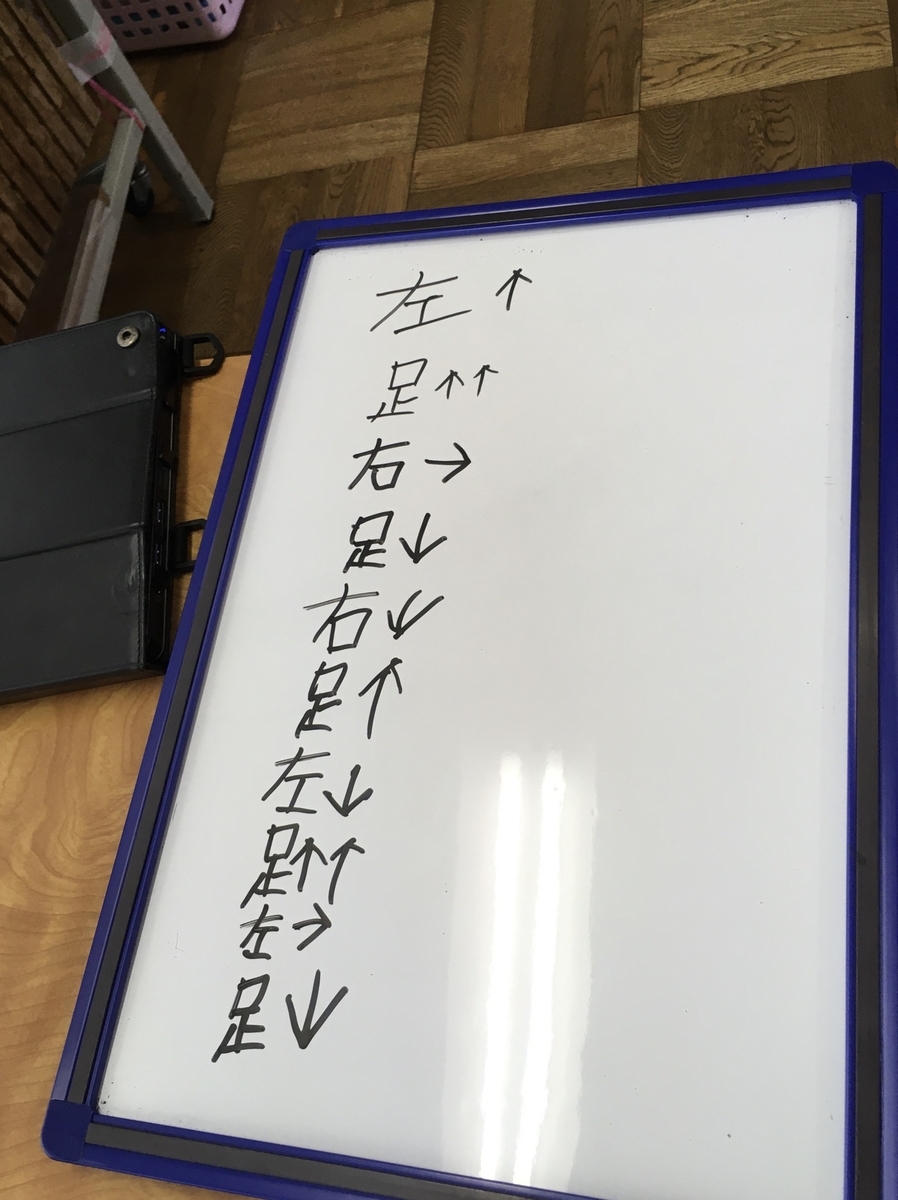 左↑
足↑↑
右→
足↓
右↓
足↑
左↓
足↑↑
左→
足↓